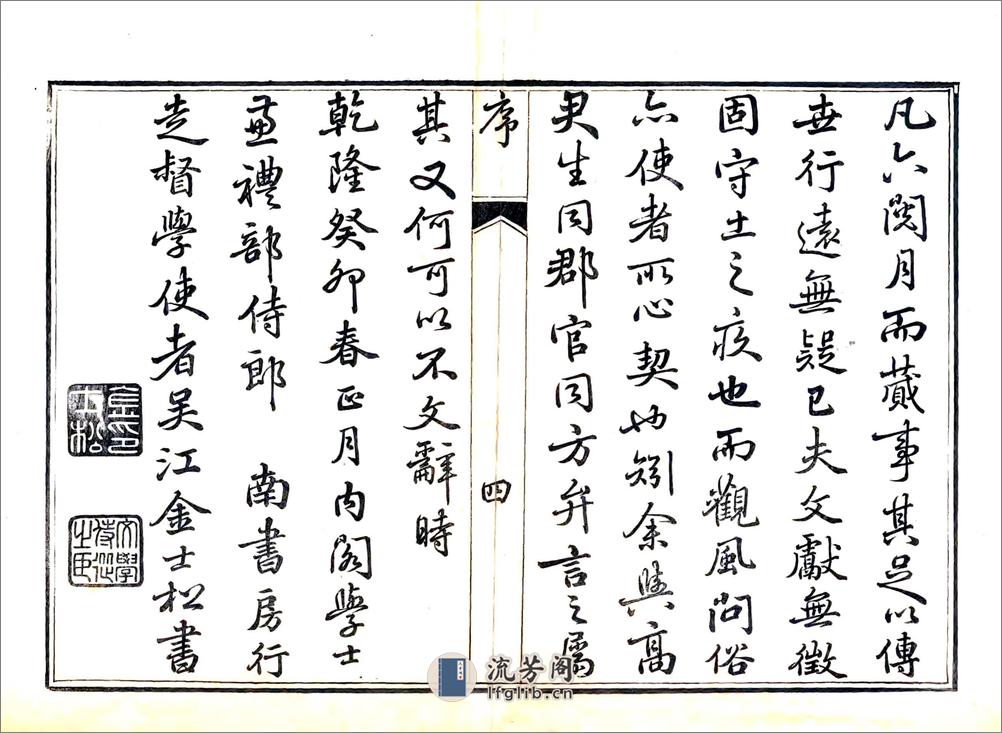 凡六閱月而蕆事其足以傳
世行遠無疑已夫文獻無徵
固守土之疚也而觀風問俗
亦使者所心契也矧余與高
君生同郡官同方弁言之屬
序
四
其又何可以不文辭時
乾隆癸卯春正月内閣學士
兼禮部侍郎 南書房行
走督學使者吳江金士松書
金印士松
文學侍從之臣
流芳阁
lfglib.cn